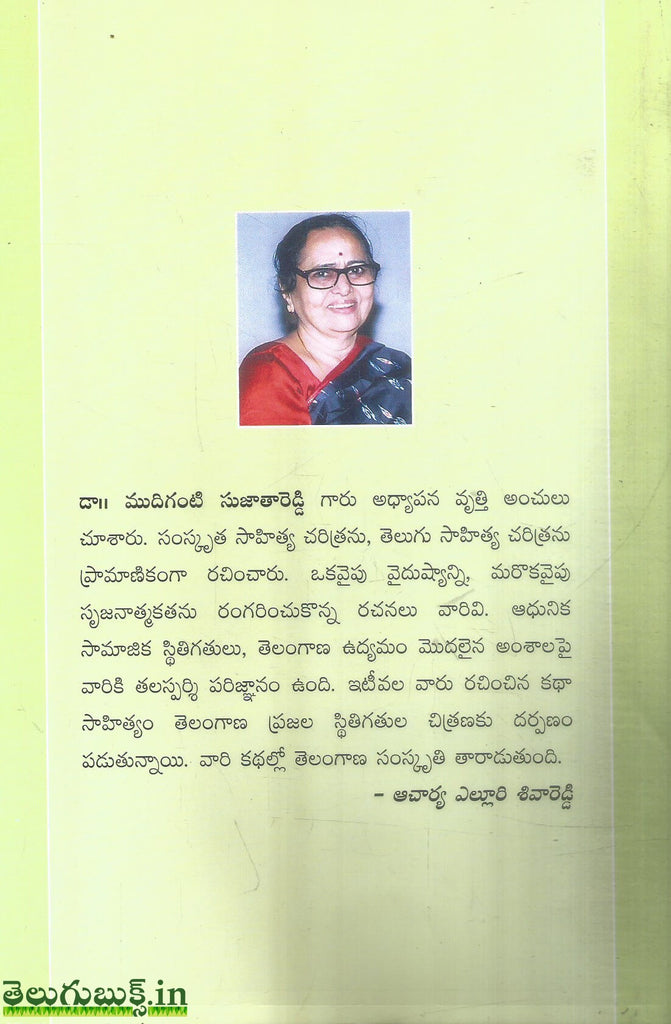 డా॥ ముదిగంటి సుజాతారెడ్డి గారు అధ్యాపన వృత్తి అంచులు
చూశారు. సంస్కృత సాహిత్య చరిత్రను, తెలుగు సాహిత్య చరిత్రను
ప్రామాణికంగా రచించారు. ఒకవైపు వైదుష్యాన్ని, మరొకవైపు
సృజనాత్మకతను రంగరించుకొన్న రచనలు వారివి. ఆధునిక
సామాజిక స్థితిగతులు, తెలంగాణ ఉద్యమం మొదలైన అంశాలపై
వారికి తలస్పర్శి పరిజ్ఞానం ఉంది. ఇటీవల వారు రచించిన కథా
సాహిత్యం తెలంగాణ ప్రజల స్థితిగతుల చిత్రణకు దర్పణం
పడుతున్నాయి. వారి కథల్లో తెలంగాణ సంస్కృతి తారాడుతుంది.
- ఆచార్య ఎల్లూరి శివారెడ్డి
తెలుగుబుక్స్.in